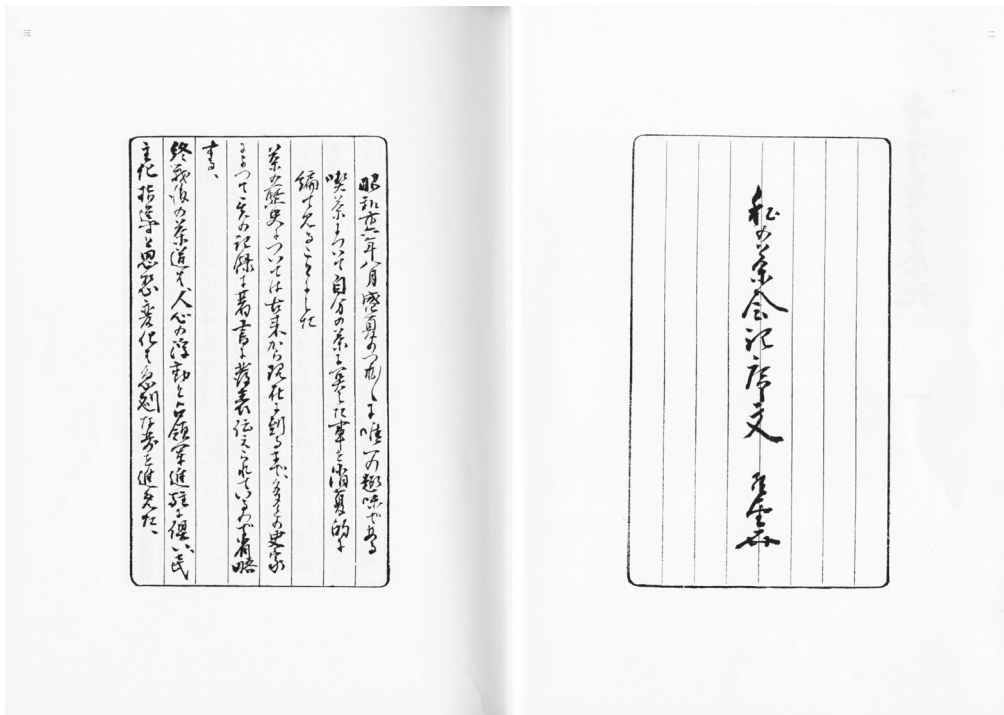 二
私の茶会記序文
三
昭和廿六年八月盛夏のつれ〲に唯一の趣味である
喫茶について自分の茶に実した事を消夏的に
編でみることにした
茶の歴史については古来から現在に到るまで、多くの史家
によつて其の記録に著書に発表伝えられているので省略
する、
終戦後の茶道は、人心の浮動と占領軍進駐に伴い、民
主化指導と思想変化は急劇な歩を進めた、